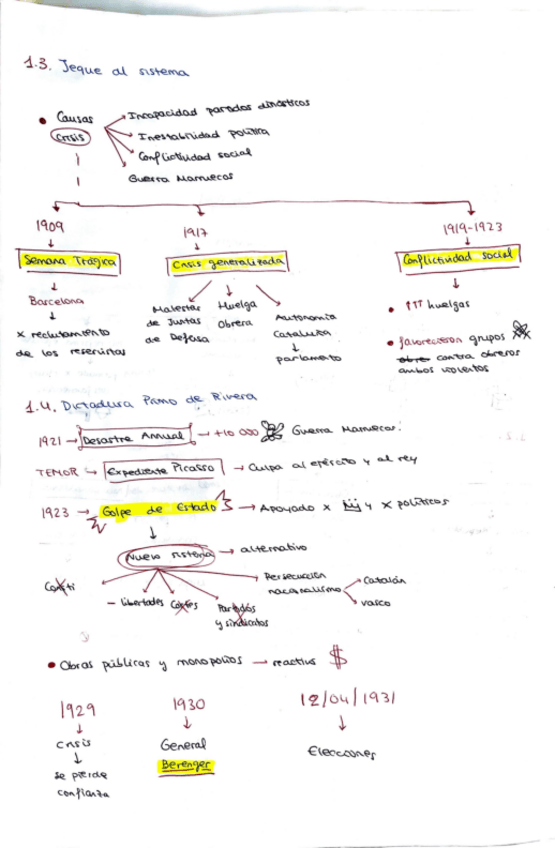 1.3. Jeque al sistema
• Causas → Incapacidad partidos dinásticos
Crisis → Inestabilidad política
→ Conflictividad social
Guerra Marruecos
1909 1917 1919-1923
Semana Trágica Crisis generalizada Conflictividad social
Barcelona
x reclutamiento
de los reservistas
Malestar
de Juntas
de Defasa
Huelga
Obrera
Autonomía
Cataluña
↓
parlamento
• ↑↑↑ huelgas
• favorecieron grupos
obre contra obreros
ambos violentos
1.4. Dictadura Primo de Rivera
1921 → Desastre Annual → +10 000 Guerra Marruecos.
TEMOR → Expediente Picasso → Culpa al ejército y al rey
1923 → Golpe de Estado → Apoyado x y x políticos
Nuevo sistema → alternativo
Consti
- libertades Cortes
Partidos
y sindicatos
Persecución
nacionalismo
Catalán
vasco
• Obras públicas y monopolios → reactiva $
1929
crisis
↓
se pierde
confianza
1930
General
Berenger
12/04/1931
Elecciones